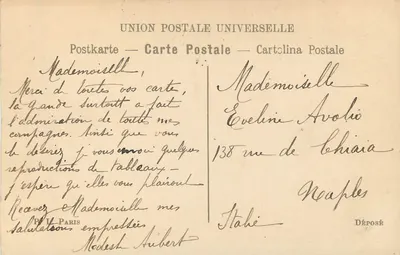 UNION POSTALE UNIVERSELLE
Postkarte — Carte Postale — Cartolina Postale
Mademoiselle,
Merci de toutes vos cartes,
la grande surtout a fait
l'admiration de toute mes
compagnes. Ainsi que vous
le désirez j'vous envoi quelques
reproductions de tableaux —
j'espère qu'elles vous plairont
Recevez Mademoiselle mes
salutations empressées
Modeste
Mademoiselle
Eveline Avolio
138 rue de Chiaia
Naples
Italie
PARIS
DÉPOSÉ